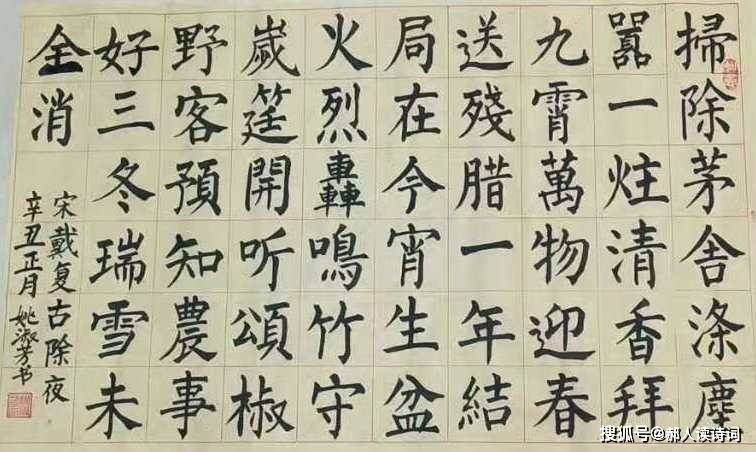 掃除茅舍滌塵
囂一炷清香拜
九霄萬物迎春
送殘腊一年結
局在今宵生盆
火烈轟鳴竹守
歲筵開听頌椒
野客預知農事
好三冬瑞雪未
全消
宋戴复古除夜
辛丑正月姚淑芳书
搜狐号@郝人读诗词